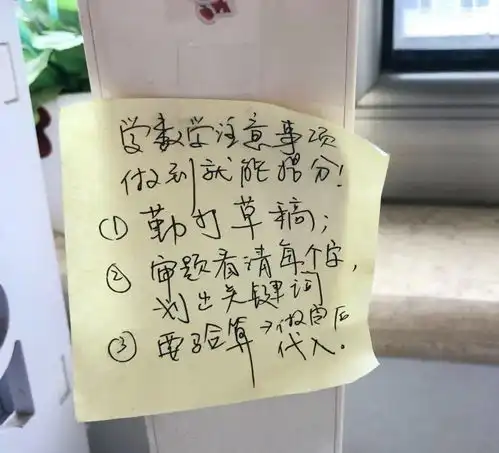 学数学注意事项
做到就能提分!
① 勤打草稿;
② 审题看清每个字,
划出关键词
③ 要验算→做完后
代入。